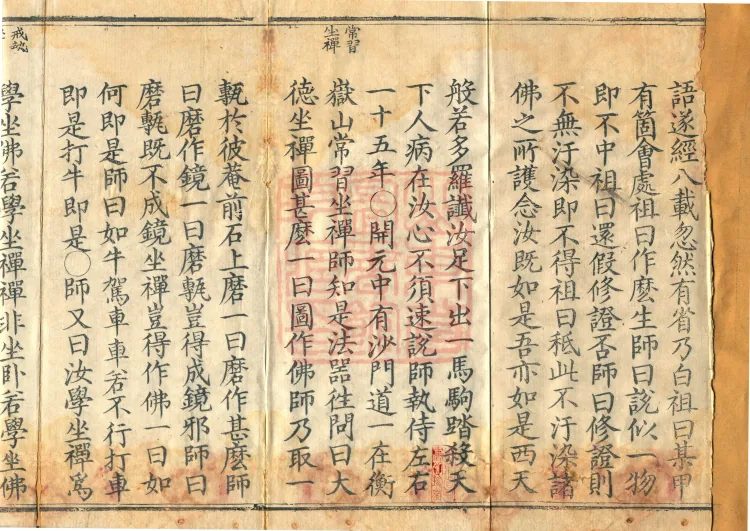 語遂經八載忽然有省乃白祖曰某甲
有箇會處祖曰作麽生師曰說似一物
即不中祖曰還假修證否師曰修證則
不無汙染即不得祖曰秪此不汙染諸
佛之所護念汝既如是吾亦如是西天
般若多羅讖汝足下出一馬駒踏殺天
下人病在汝心不須速說師執侍左右
一十五年〇開元中有沙門道一在衡
常習
坐禪
嶽山常習坐禪師知是法器徃問曰大
德坐禪圖甚麽一曰圖作佛師乃取一
甎於彼菴前石上磨一曰磨作甚麽師
曰磨作鏡一曰磨甎豈得成鏡邪師曰
磨甎既不成鏡坐禪豈得作佛一曰如
何即是師曰如牛駕車車若不行打車
即是打牛即是〇師又曰汝學坐禪爲
學坐佛若學坐禪禪非坐卧若學坐佛